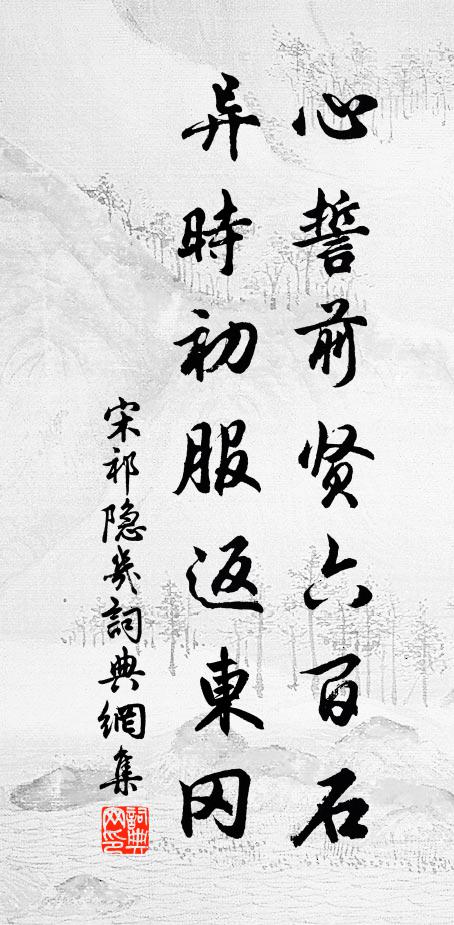 心誓前贤六百石
异時初服返東冈
宋祁隐几詞典網集
詞典网印